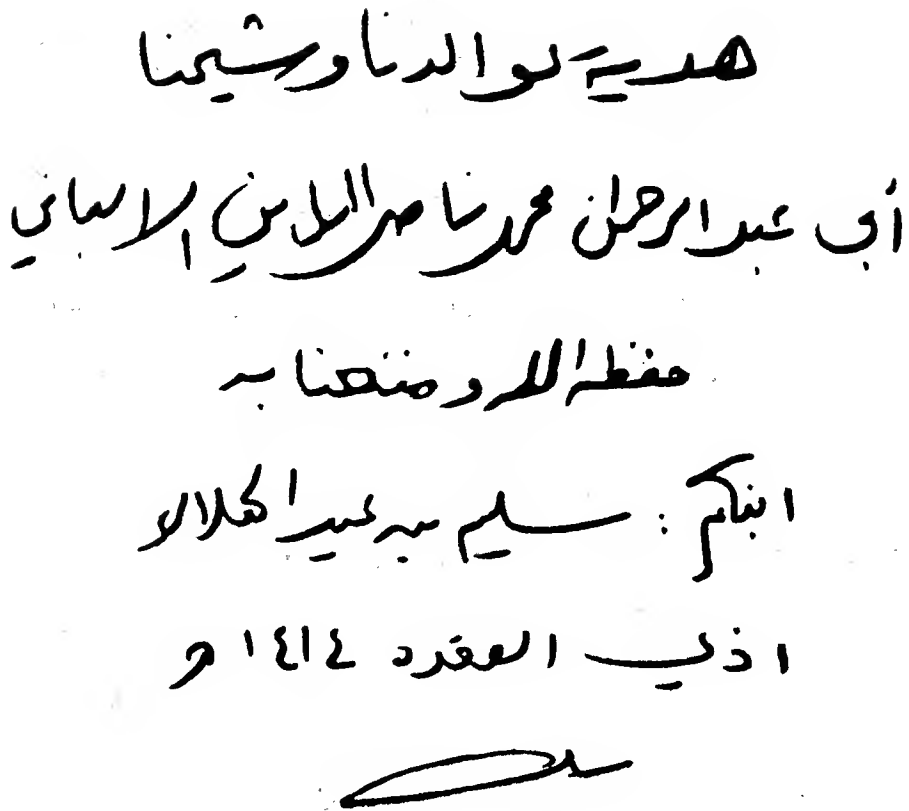 هدية لوالدنا وشيخنا
أبي عبد الرحمن محمد ناصر الدين الألباني
حفظه الله ومتعنا به
ابنكم : سليم بن عيد الهلالي
١ ذي القعدة ١٤١٤ هـ